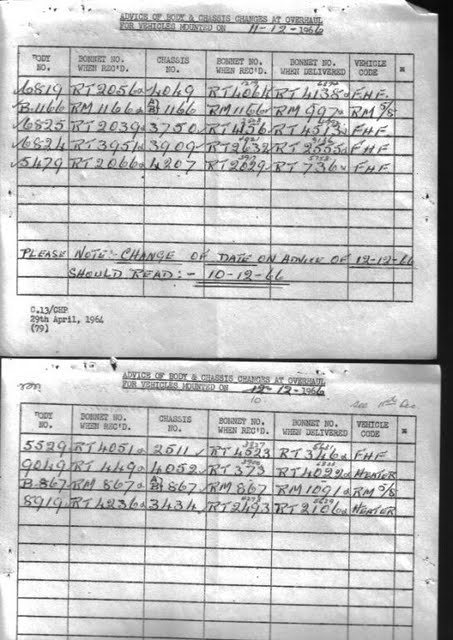 ADVICE OF BODY & CHASSIS CHANGES AT OVERHAUL
FOR VEHICLES MOUNTED ON 11-12-1966
BODY NO. BONNET NO. WHEN REC'D. CHASSIS NO. BONNET NO. WHEN REC'D. BONNET NO. WHEN DELIVERED VEHICLE CODE *
6819 RT 2056 4049 RT 4064 RT 4138 FHF
B.1166 RM 1166 1166 RM 1166 RM 997 RM 5/8
6825 RT 2039 3750 RT 456 RT 4513 FHF
6824 RT 3954 3909 RT 2632 RT 2555 FHF
5479 RT 2066 4207 RT 2029 RT 736 FHF
PLEASE NOTE:- CHANGE OF DATE ON ADVICE OF 12-12-66
SHOULD READ:- 10-12-66
C.13/GHP
29th April, 1964
(79)
ADVICE OF BODY & CHASSIS CHANGES AT OVERHAUL
FOR VEHICLES MOUNTED ON 12-12-1966
10
BODY NO. BONNET NO. WHEN REC'D. CHASSIS NO. BONNET NO. WHEN REC'D. BONNET NO. WHEN DELIVERED VEHICLE CODE *
5529 RT 4051 2511 RT 4523 RT 346 FHF
9049 RT 449 4052 RT 373 RT 4022 HEATER
B.867 RM 867 867 RM 867 RM 1091 RM 5/8
8919 RT 4236 3434 RT 2493 RT 2106 HEATER